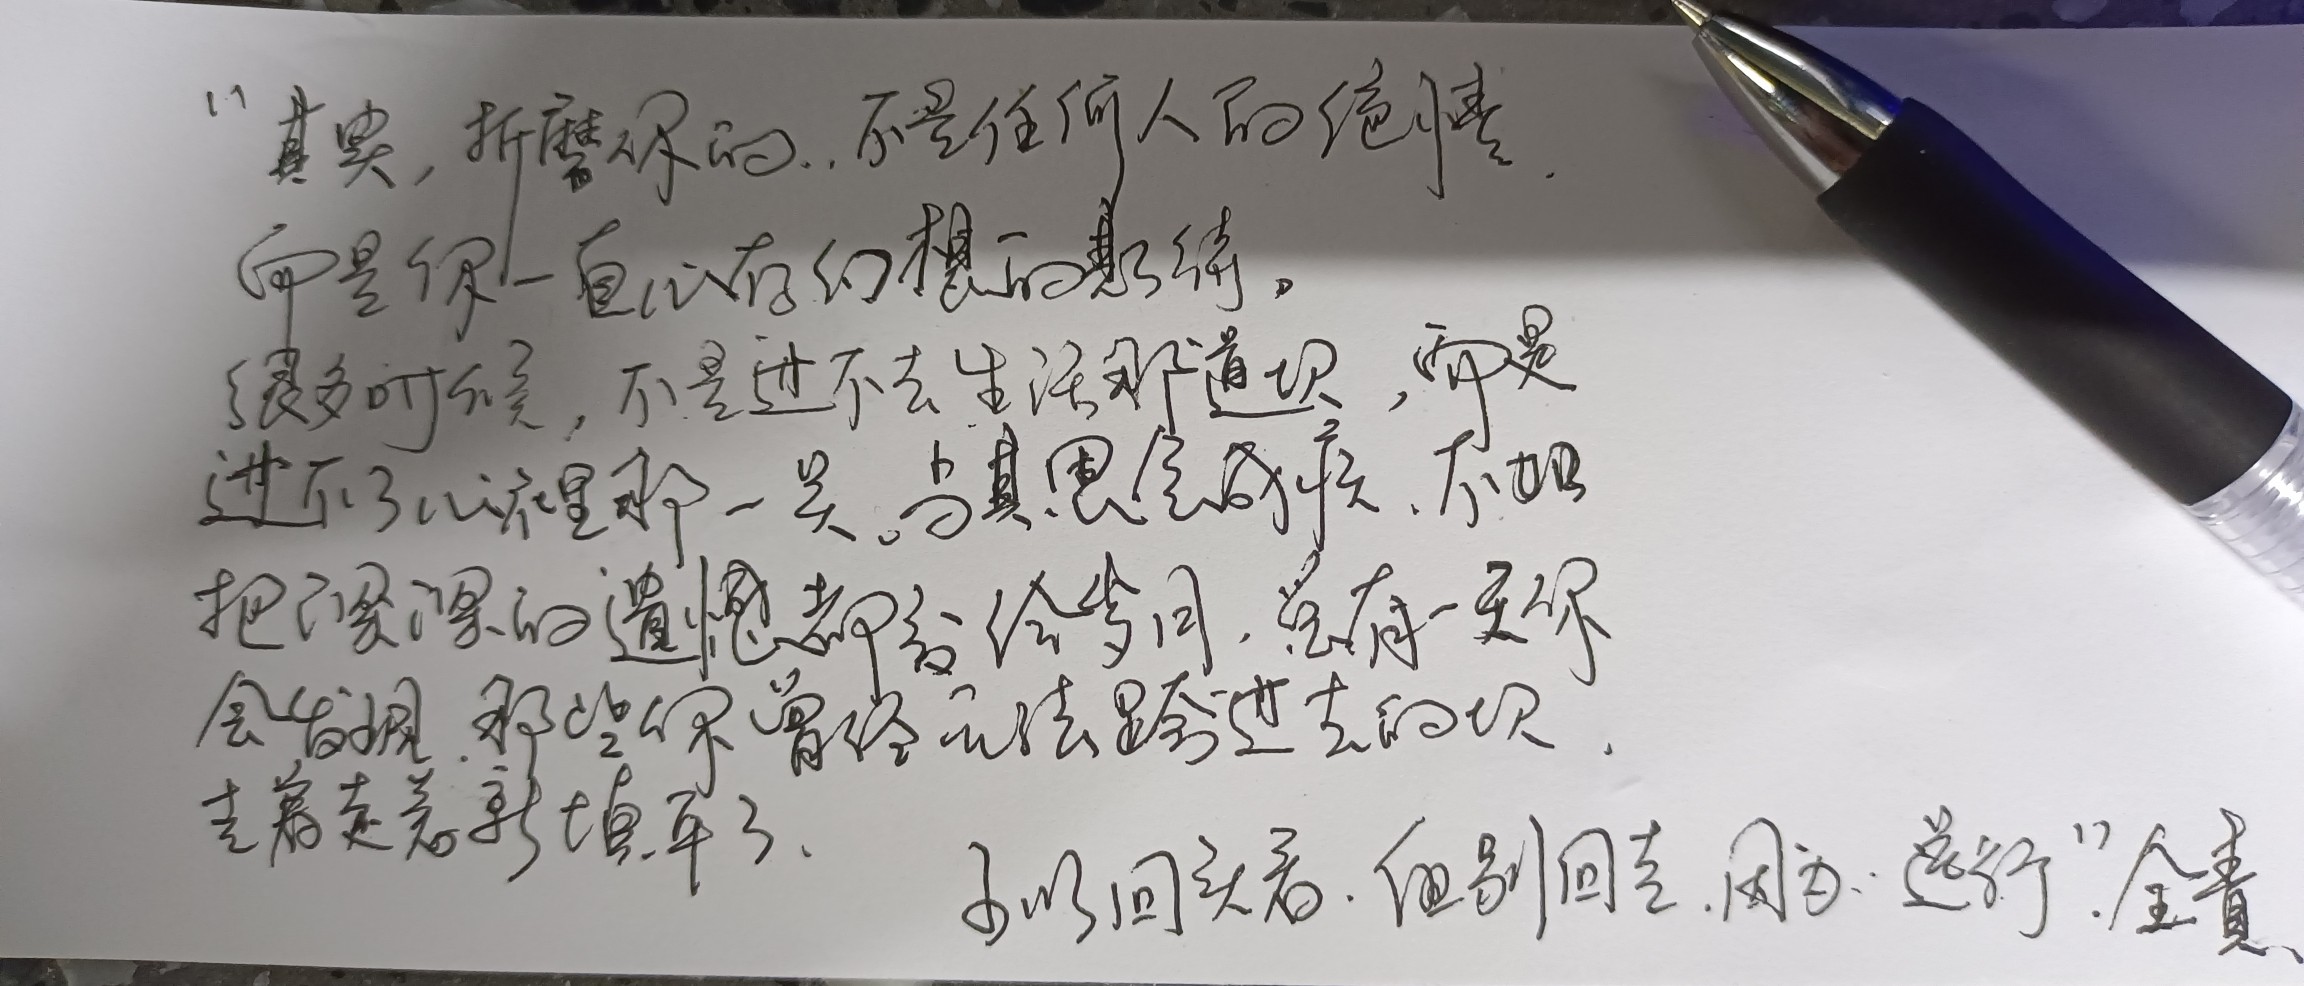 "其实，折磨你的..不是任何人的绝情.
而是你一直心存幻想的期待。
很多时候，不是过不去生活那道坎，而是
过不了心裡那一关。与其思念成疾.不如
把深深的遗憾都交给岁月.总有一天你
会发现.那些你曾经无法跨过去的坎.
走着走着就填平了.
可以回头看.但别回去.因为..逆行".全责